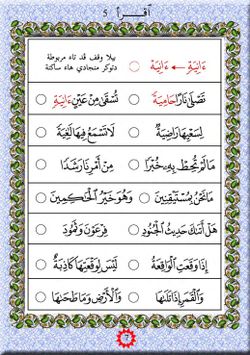 أقرأ 5
ءَانِيَةٍ ← ءَانِيَة
بيلا وقف قد تاء مربوطة
دتوكر منجادي هاء ساكنة
تَصْلَىٰ نَارًا حَامِيَةً
تُسْقَىٰ مِنْ عَيْنٍ ءَانِيَةٍ
لِسَعْيِهَا رَاضِيَةٌ
لَّا تَسْمَعُ فِيهَا لَٰغِيَةً
مَا لَمْ تُحِطْ بِهِۦ خُبْرًا
مِنْ أَمْرِنَا رَشَدًا
مَا نَحْنُ بِمُسْتَيْقِنِينَ
وَهُوَ خَيْرُ ٱلْحَٰكِمِينَ
هَلْ أَتَىٰكَ حَدِيثُ ٱلْجُنُودِ
فِرْعَوْنَ وَثَمُودَ
إِذَا وَقَعَتِ ٱلْوَاقِعَةُ
لَيْسَ لِوَقْعَتِهَا كَاذِبَةٌ
وَٱلْقَمَرِ إِذَا تَلَىٰهَا
وَٱلْأَرْضِ وَمَا طَحَىٰهَا